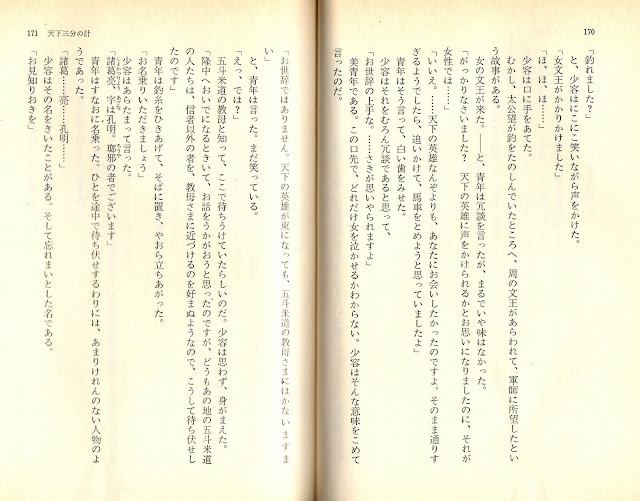 170
「釣れました?」
と、少容はにこにこ笑いながら声をかけた。
「女文王がかかりかけました」
「ほ、ほ、ほ……」
少容は口に手をあてた。
むかし、太公望が釣をたのしんでいたところへ、周の文王があらわれて、軍師に所望したとい
う故事がある。
女の文王が来た。――と、青年は冗談を言ったが、まるでいや味はなかった。
「がっかりなさいました? 天下の英雄に声をかけられるかとお思いになりましたのに、それが
女性では……」
「いいえ。……天下の英雄なんぞよりも、あなたにお会いしたかったのですよ。そのまま通りす
ぎるようでしたら、追いかけて、馬車をとめようと思っていましたよ」
青年はそう言って、白い歯をみせた。
少容はそれをむろん冗談であると思って、
「お世辞の上手な。……さきが思いやられますよ」
美青年である。この口先で、どれだけ女を泣かせるかわからない。少容はそんな意味をこめて
言ったのだ。
171 天下三分の計
「お世辞ではありません。天下の英雄が束になっても、五斗米道の教母さまにはかないますま
い」
と、青年は言った。まだ笑っている。
「えっ、では?」
五斗米道の教母と知って、ここで待ちうけていたらしいのだ。少容は思わず、身がまえた。
「隆中へおいでになるときいて、お話をうかがおうと思ったのですが、どうもあの地の五斗米道
の人たちは、信者以外の者を、教母さまに近づけるのを好まぬようなので、こうして待ち伏せし
たのです」
青年は釣糸をひきあげて、そばに置き、やおら立ちあがった。
「お名乗りいただきましょう」
少容はあらたまって言った。
「諸葛亮、字は孔明。瑯邪の者でございます」
青年はすなおに名乗った。ひとを途中で待ち伏せするわりには、あまりけれんのない人物のよ
うであった。
「諸葛……亮……孔明……」
少容はその名をきいたことがある。そして忘れまいとした名である。
「お見知りおきを」